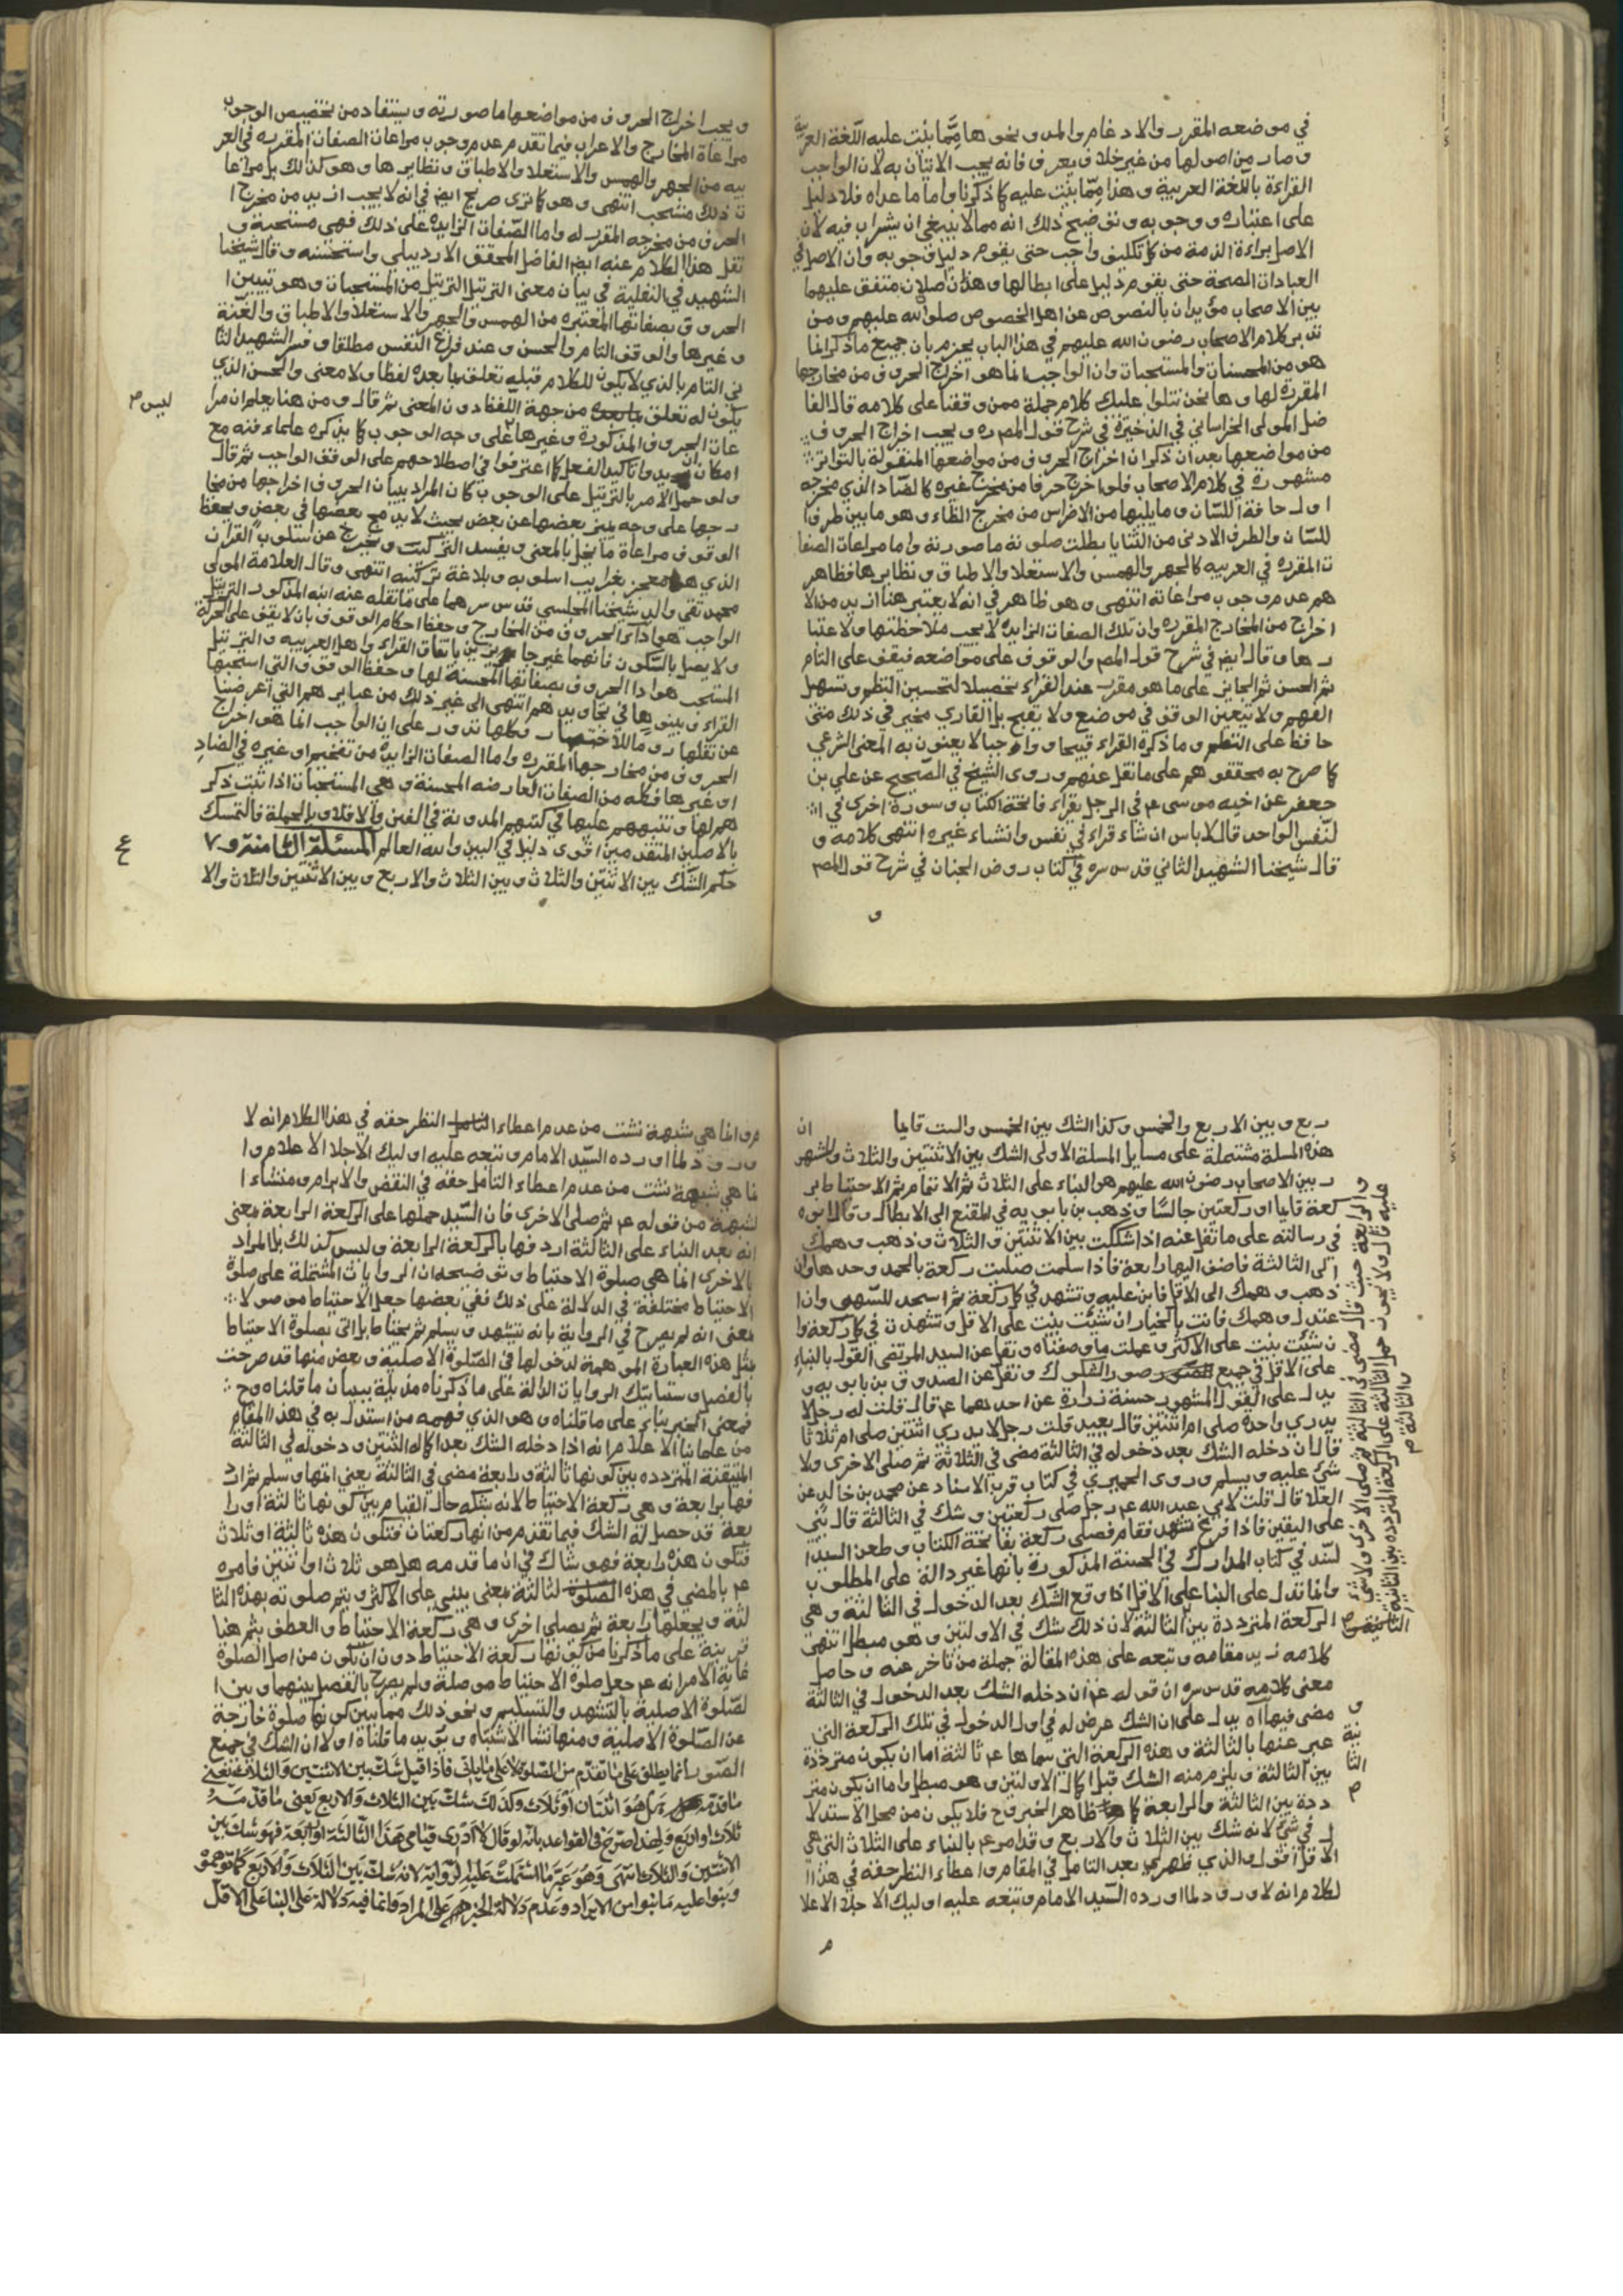 في موضعه المقرر والادغام والمد ونحوها مما بنت عليه اللغة العربية
وصار من اصولها من غير خلاف يعرف فانه يجب الاتيان به لان الواجب
القراءة باللغة العربية وهذا مما بنت عليه كما ذكرنا واما ما عداه فلا دليل
على اعتباره ووجوبه وتوضيح ذلك انه مما لا ينبغي ان يستراب فيه لان
الاصل براءة الذمة من كل تكليف واجب حتى يقوم دليل وجوبه وان الاصل في
العبادات الصحة حتى يقوم دليل على ابطالها وهذان اصلان متفق عليهما
بين الاصحاب مؤيدان بالنصوص عن اهل الخصوص صلوات الله عليهم ومن
تدبر كلام الاصحاب رضوان الله عليهم في هذا الباب يجزم بان جميع ما ذكر انما
هو من المحسنات والمستحبات وان الواجب انما هو اخراج الحروف من مخارجها
المقررة لها وها نحن نتلوا عليك كلام جملة ممن وقفنا على كلامه قال الفا
ضل المولى الخراساني في الذخيرة في شرح قول المصره ويجب اخراج الحروف
من مواضعها بعد ان ذكر ان اخراج الحروف من مواضعها المنقولة بالتواتر
مشهورة في كلام الاصحاب فلو اخرج حرفا من مخرج غيره كالضاد الذي مخرجه
اول حافة اللسان وما يليها من الاضراس من مخرج الظاء وهو ما بين طرف ا
للسان والطرف الادنى من الثنايا بطلت صلوته ما صورته واما مراعات الصفا
ت المقرره في العربيه كالجهر والهمس والاستعلا والاطباق ونظايرها فظاهر
هم عدم وجوب مراعاته انتهى وهو ظاهر في انه لا يعتبر هنا ازيد من الا
خراج من المخارج المقرره وان تلك الصفات الزايده لا يجب ملاحظتها ولا اعتبا
رها وقال ايض في شرح قول المص والوقوف على مواضعه فيقف على التام
ثم الحسن ثم الجايز على ما هو مقرر عند القراء تحصيلا لتحسين النظم وتسهل
الفهم ولا يتعين الوقف في موضع ولا يقبح بل القاري مخير في ذلك متى
حافظ على النظم وما ذكره القراء قبيحا وواجبا لا يعنون به المعنى الشرعي
كما صرح به محققوهم على ما نقل عنهم وروى الشيخ في الصحيح عن علي بن
جعفر عن اخيه موسى ع في الرجل يقراء فاتحة الكتاب وسورة اخرى في ا
لنفس الواحد قال لا باس ان شاء قراء في نفس وان شاء غيره انتهى كلامه و
قال شيخنا الشهيد الثاني قدس سره في كتاب روض الجنان في شرح قول المص
و
ويجب اخراج الحروف من مواضعها ما صورته ويستفاد من تخصيص الوجوب
مراعاة المخارج والاعراب فيما تقدم عدم وجوب مراعات الصفات المقرره في العر
بيه من الجهر والهمس والاستعلا والاطباق ونظايرها وهو كذلك بل مراعا
ت ذلك مستحب انتهى وهو كما ترى صريح ايض في انه لا يجب ازيد من مخرج ا
لحرف من مخرجه المقرر له واما الصفات الزايده على ذلك فهي مستحبة و
نقل هذا الكلام عنه ايض الفاضل المحقق الاردبيلي واستحسنه وقال شيخنا
الشهيد في النفلية في بيان معنى الترتيل الترتيل من المستحبات وهو تبيين ا
لحروف بصفاتها المعتبره من الهمس والجهر والاستعلا والاطباق والغنة
وغيرها والوقف التام والحسن وعند فراغ النفس مطلقا وفسر الشهيد الثا
ني التام بالذي لا يكون للكلام قبله تعلق بما بعده لفظا ولا معنى والحسن الذي
يكون له تعلق بما بعده من جهة اللفظ دون المعنى ثم قال ومن هنا يعلم ان مرا
ليس م
عات الحروف المذكورة وغيرها على وجه الوجوب كما يذكره علماء فنه مع
امكان ان يريدوا تاكيد الفعل كما اعترفوا في اصطلاحهم على الوقف الواجب ثم قال
ولو حمل الامر بالترتيل على الوجوب كان المراد ببيان الحروف اخراجها من مخا
رجها على وجه يتميز بعضها عن بعض بحيث لا يدمج بعضها في بعض ويحفظ
الوقوف مراعاة ما يخل بالمعنى ويفسد التركيب ويخرج عن اسلوب القران
الذي هو معجز بغرايب اسلوبه وبلاغة تركيبه انتهى وقال العلامة المولى
محمد تقي والد شيخنا المجلسي قدس سرهما على ما نقله عنه ابنه المذكور الترتيل
الواجب هو اداى الحروف من المخارج وحفظ احكام الوقوف بان لا يقف على الحركة
ولا يصل بالسكون فانهما غير جايزين باتفاق القراء واهل العربيه والترتيل
المستحب هو اداا الحروف بصفاتها المحسنة لها وحفظ الوقوف التي استحبها
القراء وبينوها في تجاويدهم انتهى الى غير ذلك من عبايرهم التي اعرضنا
عن نقلها روما للاختصار وكلها تدور على ان الواجب انما هو اخراج
الحروف من مخارجها المقرره واما الصفات الزايده من تفخيم او غيره في الضاد
او غيرها فكله من الصفات العارضه المحسنة وهي المستحبات اذا ثبت ذكر
هم لها وتنبيههم عليها في كتبهم المدونة في الفن والا فلا وبالجملة فالتمسك
بالاصلين المتقدمين اقوى دليل في البين والله العالم المسئلة الثامنة و ٧
حكم الشك بين الاثنتين والثلاث وبين الثلاث والاربع وبين الاثنتين والثلاث والا
ربع وبين الاربع والخمس وكذا الشك بين الخمس والست قايما
ان
هذه المسلة مشتملة على مسايل المسلة الاولى الشك بين الاثنتين والثلاث والمشهو
ر بين الاصحاب رضوان الله عليهم هو البناء على الثلاث ثم الاتمام ثم الاحتياط بر
كعة قايما او ركعتين جالسا وذهب بن بابويه في المقنع الى الابطال وقال ابوه
في رسالته على ما نقل عنه اذا شككت بين الاثنتين والثلاث وذهب وهمك
الى الثالثة فاضف اليها رابعة فاذا سلمت صليت ركعة بالحمد وحدها وان
ذهب وهمك الى الاقل فابن عليه وتشهد في كل ركعة ثم اسجد للسهو وان ا
عتدل وهمك فانت بالخيار ان شئت بنيت على الاقل وتشهدت في كل ركعة وا
ن شئت بنيت على الاكثر وعملت ما وصفناه ونقل عن السيد المرتضى القول بالبناء
على الاقل في جميع صور الشكوك ونقل عن الصدوق بن بابويه و
يدل على القول المشهور حسنة زرارة عن احدهما ع قال قلت له رجل لا
يدري واحدة صلى ام اثنتين قال يعيد قلت رجل لا يدري اثنتين صلى ام ثلاثا
قال ان دخله الشك بعد دخوله في الثالثة مضى في الثلاثة ثم صلى الاخرى ولا
شئ عليه ويسلم وروى الحميري في كتاب قرب الاسناد عن محمد بن خالد عن
العلا قال قلت لابي عبد الله ع رجل صلى ركعتين وشك في الثالثة قال يبني
على اليقين فاذا فرغ تشهد فقام فصلى ركعة بفاتحة الكتاب وطعن السيد ا
لسند في كتاب المدارك في الحسنة المذكورة بانها غير دالة على المطلوب
وانما تدل على البنا على الاقل اذا وقع الشك بعد الدخول في الثالثة وهي
الركعة المترددة بين الثالثة لان ذلك شك في الاولتين وهو مبطل انتهى
كلامه زيد مقامه وتبعه على هذه المقالة جملة من تاخر عنه وحاصل
معنى كلامه قدس سره ان قوله ع ان دخله الشك بعد الدخول في الثالثة
مضى فيها اه يدل على ان الشك عرض له في اول الدخول في تلك الركعة التي
عبر عنها بالثالثة وهذه الركعة التي سماها ع ثالثة اما ان يكون مترددة
بين الثالثة ويلزم منه الشك قبل اكمال الاولتين وهو مبطل واما ان يكون متر
ددة بين الثالثة والرابعة كما هو ظاهر الخبر وح فلا يكون من محل الاستدلا
ل في شئ لانه شك بين الثلاث والاربع وقد امر ع بالبناء على الثلاث التي هي
الاقل اقول والذي ظهر لي بعد التامل في المقام واعطاء النظر حقه في هذا ا
لكلام انه لا ورود لما اورده السيد الامام وتبعه عليه اوليك الاجلا الاعلا
م
والرابعة حيث قال مضى في الثالثة ثم صلى الاخرى ولا شئ
عليه قال ولا يجوز حمل الثالثة على الركعة المترددة بين الثانية
والثالثة م
م وانما هي شبهة نشت من عدم اعطاء النظر حقه في هذا الكلام انه لا
ورود لما اورده السيد الامام وتبعه عليه اوليك الاجلا الاعلام وا
نما هي شبهة نشت من عدم اعطاء التامل حقه في النقض والابرام ومنشاء ا
لشبهة من قوله ع ثم صلى الاخرى فان السيد حملها على الركعة الرابعة بمعنى
انه بعد البناء على الثالثة اردفها بالركعة الرابعة وليس كذلك بل المراد
بالاخرى انما هي صلوة الاحتياط وتوضيحه ان الروايات المشتملة على صلوة
الاحتياط مختلفة في الدلالة على ذلك ففي بعضها جعل الاحتياط موصولا
بمعنى انه لم يصرح في الرواية بانه يتشهد ويسلم ثم يحتاط بل اتى بصلوة الاحتياط
بمثل هذه العبارة الموهمة لدخولها في الصلوة الاصلية وبعض منها قد صرحت
بالفصل وستاتيك الروايات الدالة على ما ذكرناه مذيلة ببيان ما قلناه وح
فمعنى الخبر بناء على ما قلناه وهو الذي فهمه من استدل به في هذا المقام
من علمائنا الاعلام انه اذا دخله الشك بعد اكماله الثنتين ودخوله في الثالثة
المتيقنة المتردده بين كونها ثالثة ورابعة مضى في الثالثة يعني اتمها وسلم ثم ارد
فها برابعة وهي ركعة الاحتياط لانه شكه حال القيام بين كونها ثالثة او را
بعة قد حصل له الشك فيما تقدم من انها ركعتان فتكون هذه ثالثة او ثلاث
فتكون هذه رابعة فهو شاك في ان ما قدمه هل هو ثلاث او اثنتين فامره
ع بالمضي في هذه الثالثة بمعنى يبني على الاكثر ويتم صلوته بهذه الثا
لثة ويجعلها رابعة ثم يصلي اخرى وهي ركعة الاحتياط والعطف بثم هنا
قرينة على ما ذكرنا من كونها ركعة الاحتياط دون ان يكون من اصل الصلوة
غاية الامر انه ع جعل صلوة الاحتياط موصلة ولم يصرح بالفصل بينهما وبين ا
لصلوة الاصلية بالتشهد والتسليم ونحو ذلك مما يبين كونها صلوة خارجة
عن الصلوة الاصلية ومنها نشا الاشتباه ويؤيد ما قلناه اولا ان الشك في جميع
الصور انما يطلق على ما تقدم من الصلوة لا على ما ياتي فاذا قيل شك بين الاثنتين والثلاث فيعني
ما قدمه هل هو اثنتان او ثلاث وكذلك شك بين الثلاث والاربع يعني ما قدمه
ثلاث او اربع ولهذا صرح في القواعد بانه لو قال لا ادري قيامي هذا الثالثة او رابعة فهو شك بين
الاثنتين والثلاث انتهى وهو عين ما اشتملت عليه الرواية لانه شك بين الثلاث والاربع كما توهموه
وبنوا عليه ما بنوا من الايراد وعدم دلالة الخبر على المراد وانما فيه دلالة على البنا على الاقل